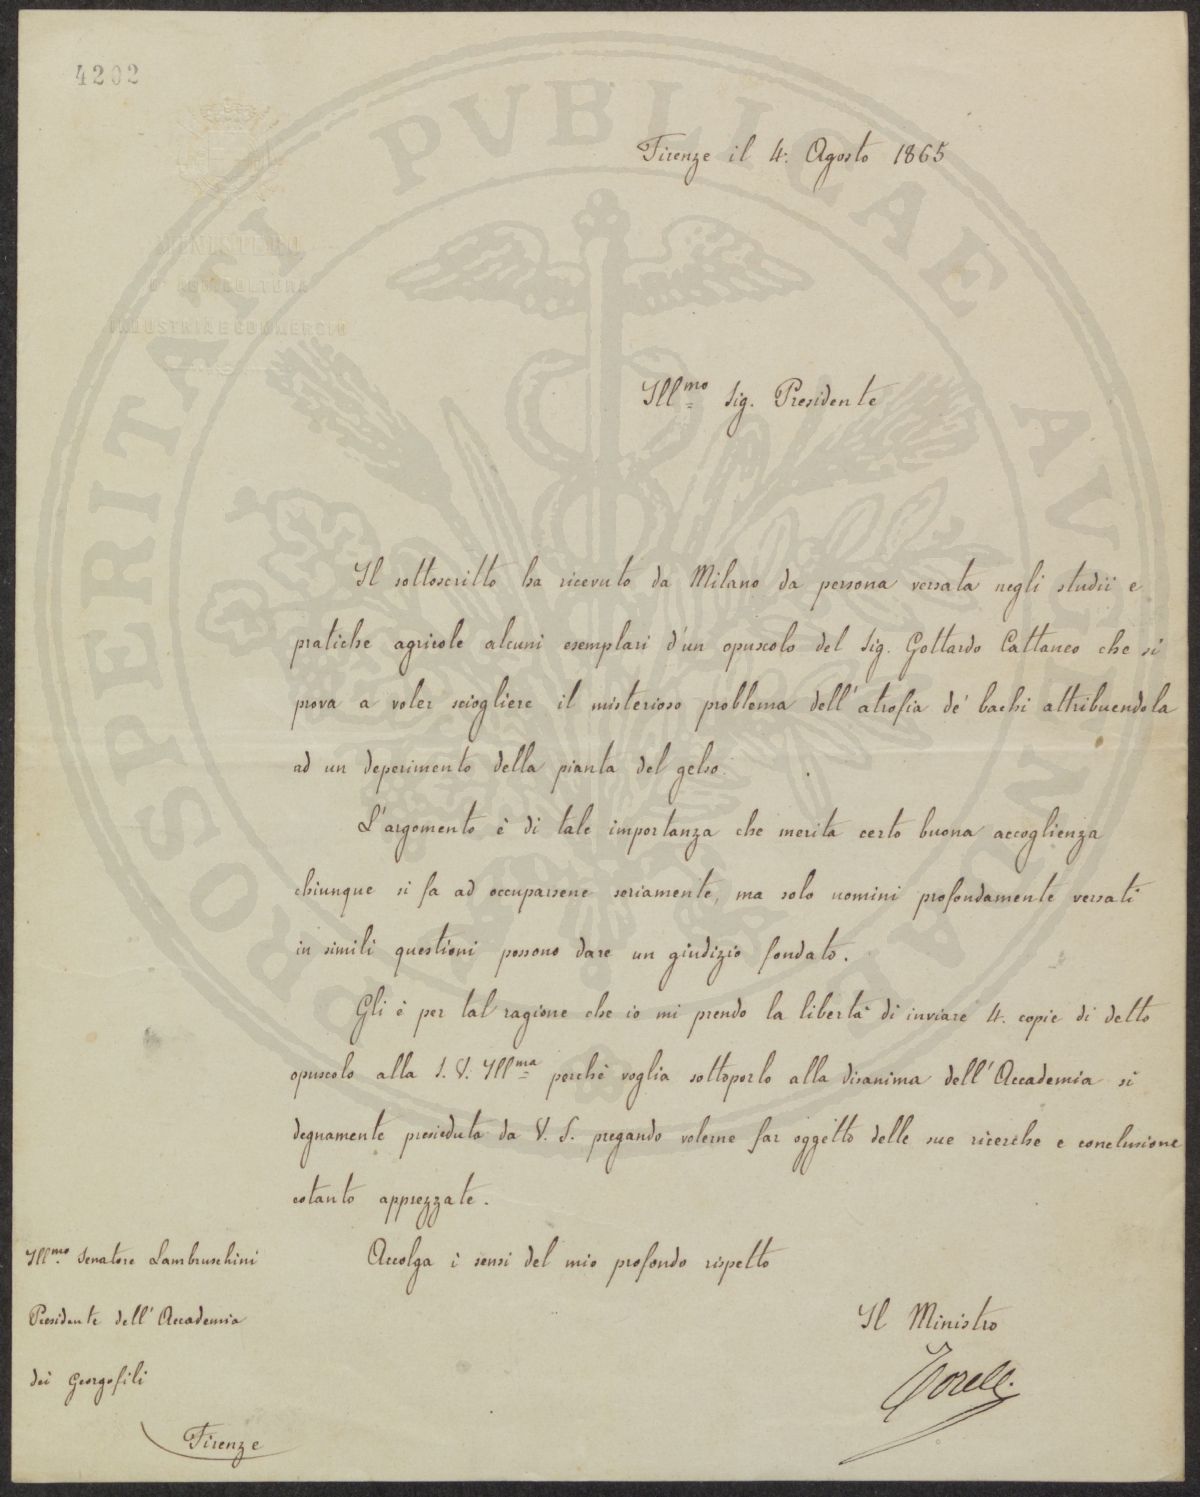 4202
MINISTERO
D'AGRICOLTURA
INDUSTRIA E COMMERCIO
PROSPERITATI PVBLICAE AVGENDAE
Firenze il 4. Agosto 1865
Ill.mo Sig. Presidente
Il sottoscritto ha ricevuto da Milano da persona versata negli studii e
pratiche agricole alcuni esemplari d'un opuscolo del Sig. Gottardo Cattaneo che si
prova a voler sciogliere il misterioso problema dell'atrofia de' bachi attribuendola
ad un deperimento della pianta del gelso.
L'argomento è di tale importanza che merita certo buona accoglienza
chiunque si fa ad occuparsene seriamente, ma solo uomini profondamente versati
in simili questioni possono dare un giudizio fondato.
Gli è per tal ragione che io mi prendo la libertà di inviare 4. copie di detto
opuscolo alla S. V. Ill.ma perchè voglia sottoporlo alla disanima dell'Accademia sì
degnamente presieduta da V. S. pregando volerne far oggetto delle sue ricerche e conclusione
cotanto apprezzate.
Accolga i sensi del mio profondo rispetto
Il Ministro
Torelli
Ill.mo Senatore Lambruschini
Presidente dell'Accademia
dei Georgofili
Firenze